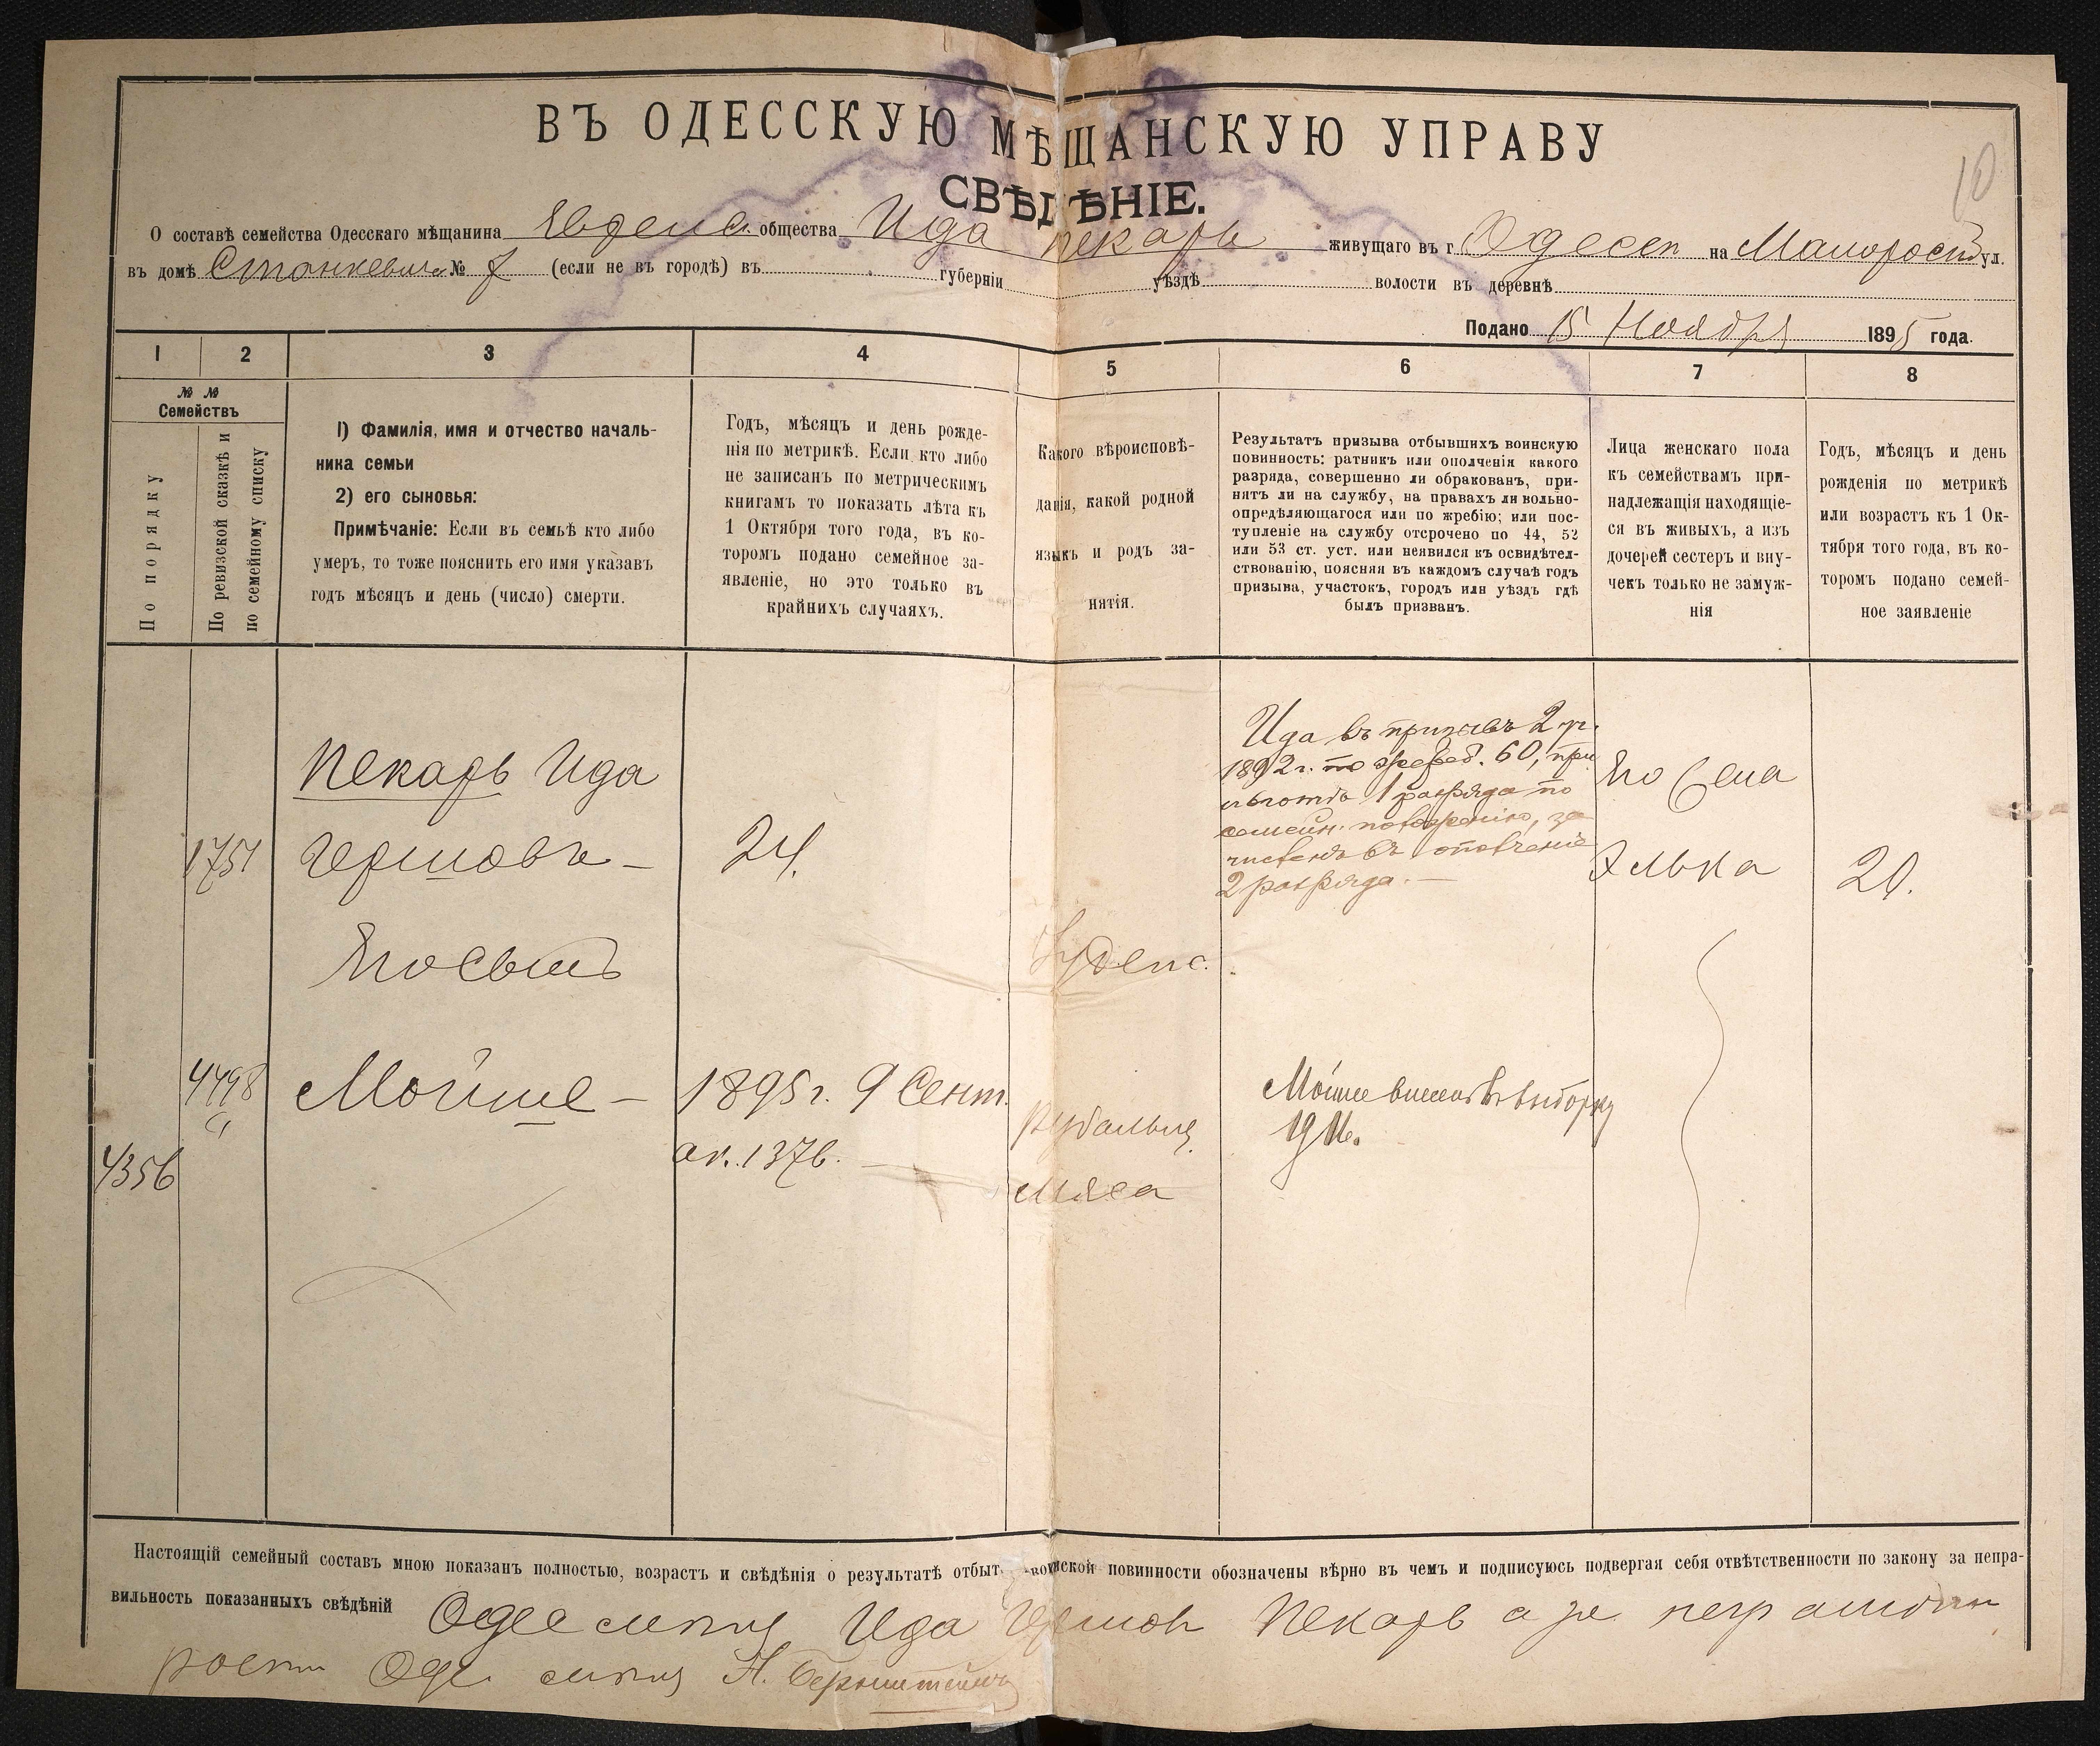 ВЪ ОДЕССКУЮ МѢЩАНСКУЮ УПРАВУ
СВѢДѢНІЕ.
10
О составѣ семейства Одесскаго мѣщанина Еврейс. общества Ида Пекарь живущаго въ г. Одессѣ на Малоросій ул.
въ домѣ Станкевича № 7 (если не въ городѣ) въ губерніи уѣздѣ волости въ деревнѣ
Подано 15 Ноября 1895 года.
1 2 3 4 5 6 7 8
№ №
Семействъ
По порядку
По ревизской сказкѣ и
по семейному списку
1) Фамилія, имя и отчество началь-
ника семьи
2) его сыновья:
Примѣчаніе: Если въ семьѣ кто либо
умеръ, то тоже пояснить его имя указавъ
годъ мѣсяцъ и день (число) смерти.
Годъ, мѣсяцъ и день рожде-
нія по метрикѣ. Если кто либо
не записанъ по метрическимъ
книгамъ то показать лѣта къ
1 Октября того года, въ ко-
торомъ подано семейное за-
явленіе, но это только въ
крайнихъ случаяхъ.
Какого вѣроисповѣ-
данія, какой родной
языкъ и родъ за-
нятія.
Результатъ призыва отбывшихъ воинскую
повинность: ратникъ или ополченія какого
разряда, совершенно ли обракованъ, при-
нятъ ли на службу, на правахъ ли вольно-
опредѣляющагося или по жребію; или пос-
тупленіе на службу отсрочено по 44, 52
или 53 ст. уст. или неявился къ освидѣтел-
ствованію, поясняя въ каждомъ случаѣ годъ
призыва, участокъ, городъ или уѣздъ гдѣ
былъ призванъ.
Лица женскаго пола
къ семействамъ при-
надлежащія находящіе-
ся въ живыхъ, а изъ
дочерей сестеръ и вну-
чекъ только не замуж-
нія
Годъ, мѣсяцъ и день
рожденія по метрикѣ
или возрастъ къ 1 Ок-
тября того года, въ ко-
торомъ подано семей-
ное заявленіе
Пекарь Ида
1751 Гершовъ — 24.
Его сынъ
4498 Мойше — 1895 г. 9 Сент.
ак. 1376. —
4356
Іудейс.
Рубальщ.
мяса
Ида въ призывъ 2 уч.
1892 г. по жереб. 60, при
льготѣ 1 разряда по
семейн. положенію, за
численъ въ ополченіе
2 разряда. —
Мойше внесенъ въ выборку
1916.
Его жена
Элька 20.
Настоящій семейный составъ мною показанъ полностью, возрастъ и свѣдѣнія о результатѣ отбыт воинской повинности обозначены вѣрно въ чемъ и подписуюсь подвергая себя отвѣтственности по закону за непра-
вильность показанныхъ свѣдѣній Одес мѣщ Ида Гершов Пекарь а за неграмотн
росп Одес мѣщ Н. Бернштейнъ